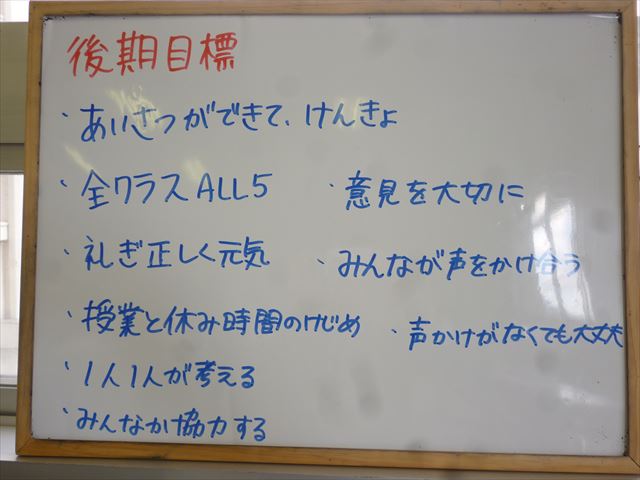 後期目標
・あいさつができて、けんきょ
・全クラスALL5
・意見を大切に
・礼ぎ正しく元気
・みんなが声をかけ合う
・授業と休み時間のけじめ
・声かけがなくても大丈夫
・1人1人が考える
・みんなが協力する